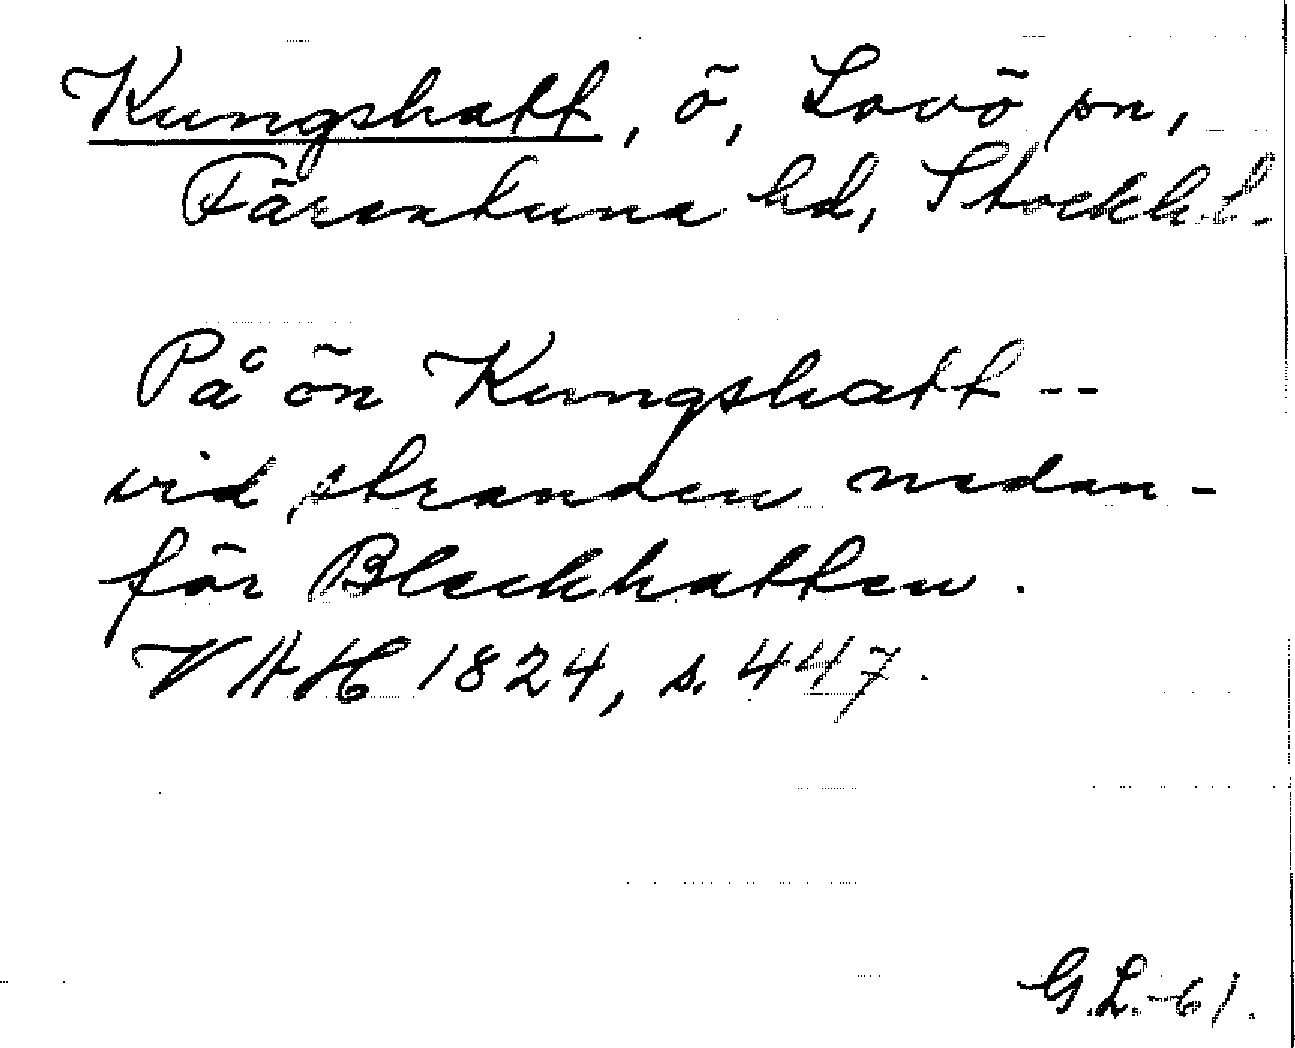 Kungshatt, ö, Lovö sn,
Färentuna hd, Stockh. l.
På ön Kungshatt --
vid stranden nedan-
för Bleckhatten.
VHH 1824, s. 447.
G.L.-61.